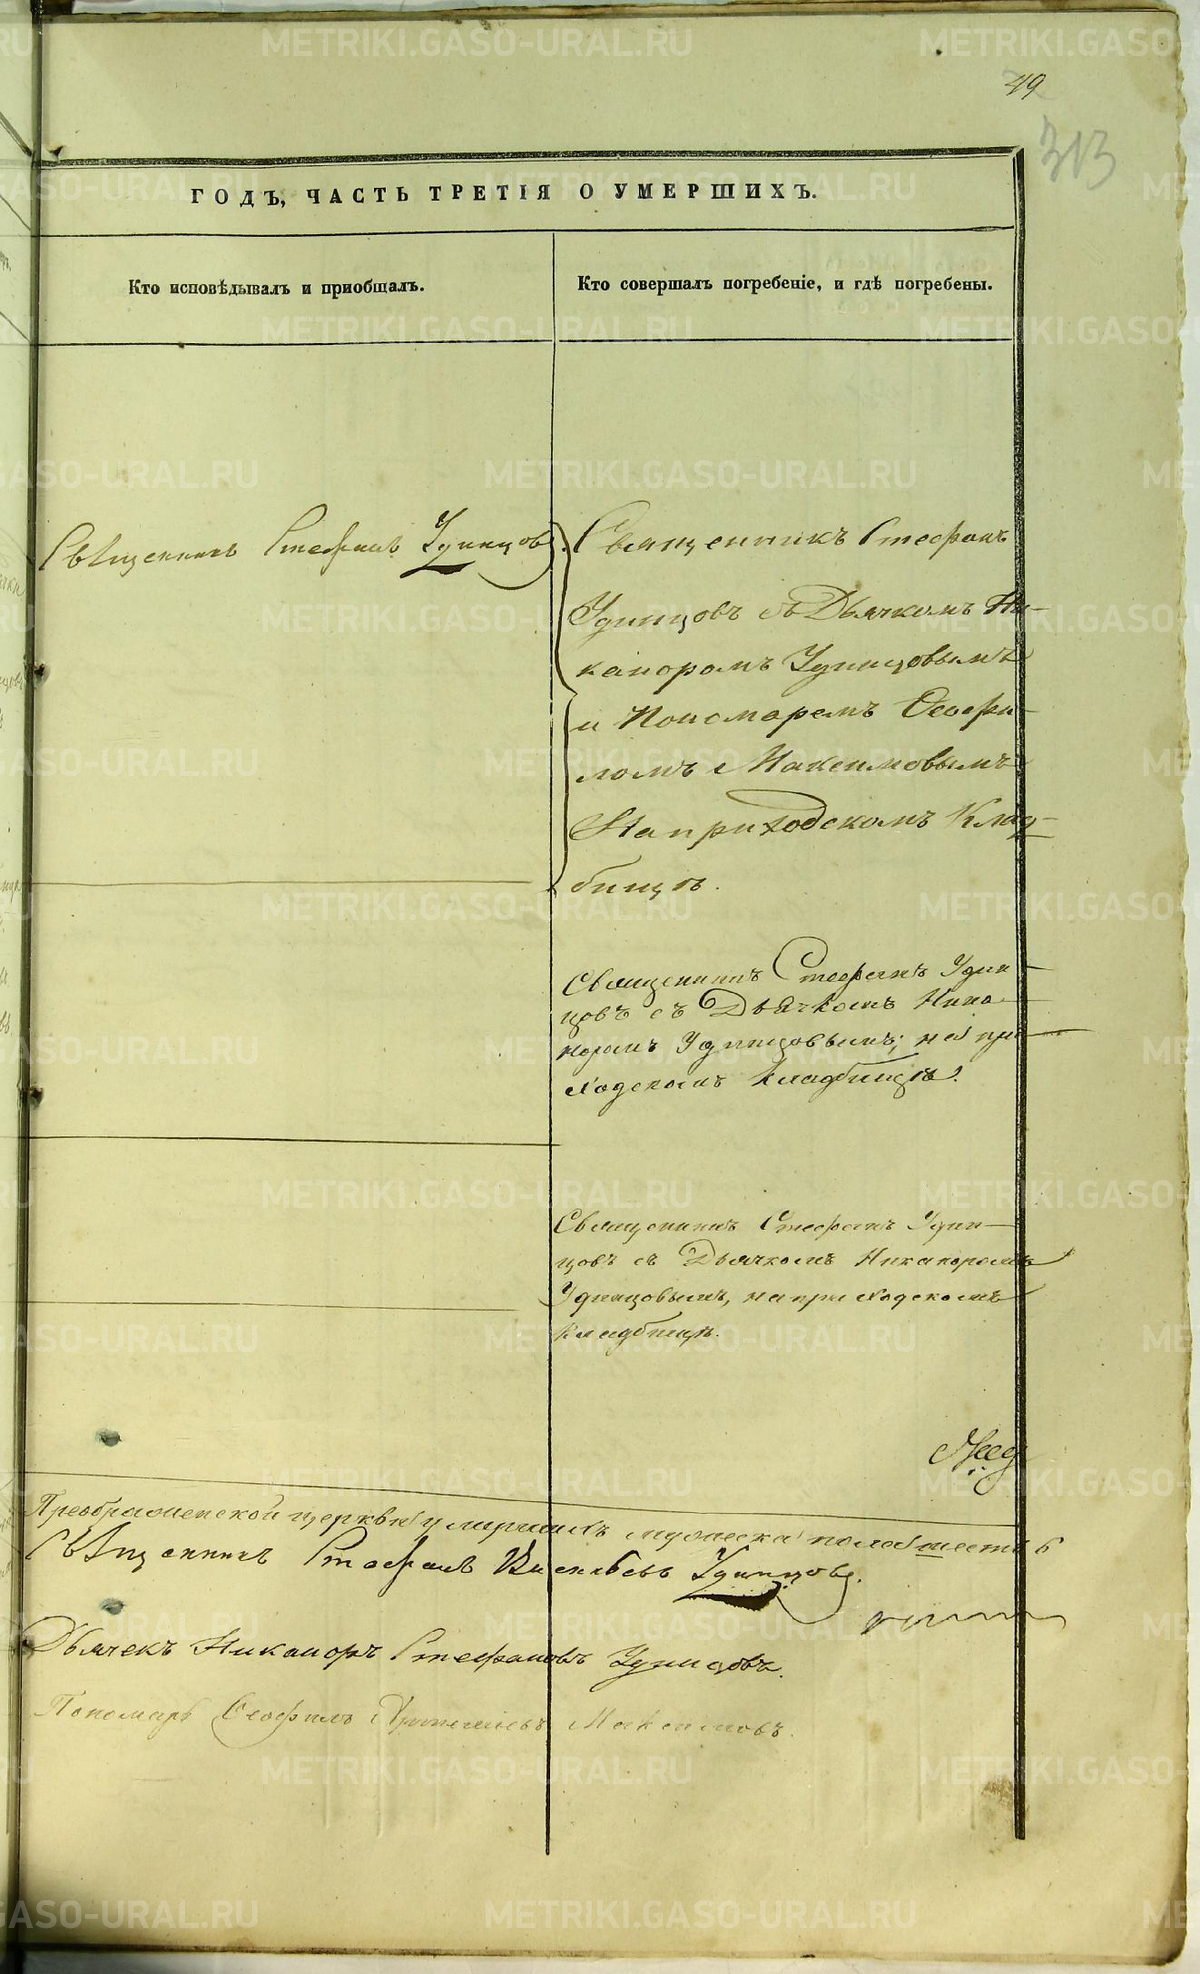 49
313
ГОДЪ, ЧАСТЬ ТРЕТІЯ О УМЕРШИХЪ.
Кто исповѣдывалъ и приобщалъ.
Кто совершалъ погребеніе, и гдѣ погребены.
Священникъ Стефанъ Удинцовъ
Священникъ Стефанъ
Удинцовъ съ Дьячкомъ Ни-
каноромъ Удинцовымъ
и Пономаремъ Ѳеофи-
ломъ Максимовымъ
На приходскомъ Клад-
бищѣ.
Священникъ Стефанъ Удин-
цовъ съ Дьячкомъ Ника-
норомъ Удинцовымъ, на при-
ходскомъ кладбищѣ.
Священникъ Стефанъ Удин-
цовъ съ Дьячкомъ Никаноромъ
Удинцовымъ, на приходскомъ
кладбищѣ.
Преображенской церкви умершихъ мужеска пола шесть 6
Священникъ Стефанъ Удинцовъ.
Дьячекъ Никаноръ Стефановъ Удинцовъ.
Пономарь Ѳеофилъ Максимовъ.
METRIKI.GASO-URAL.RU